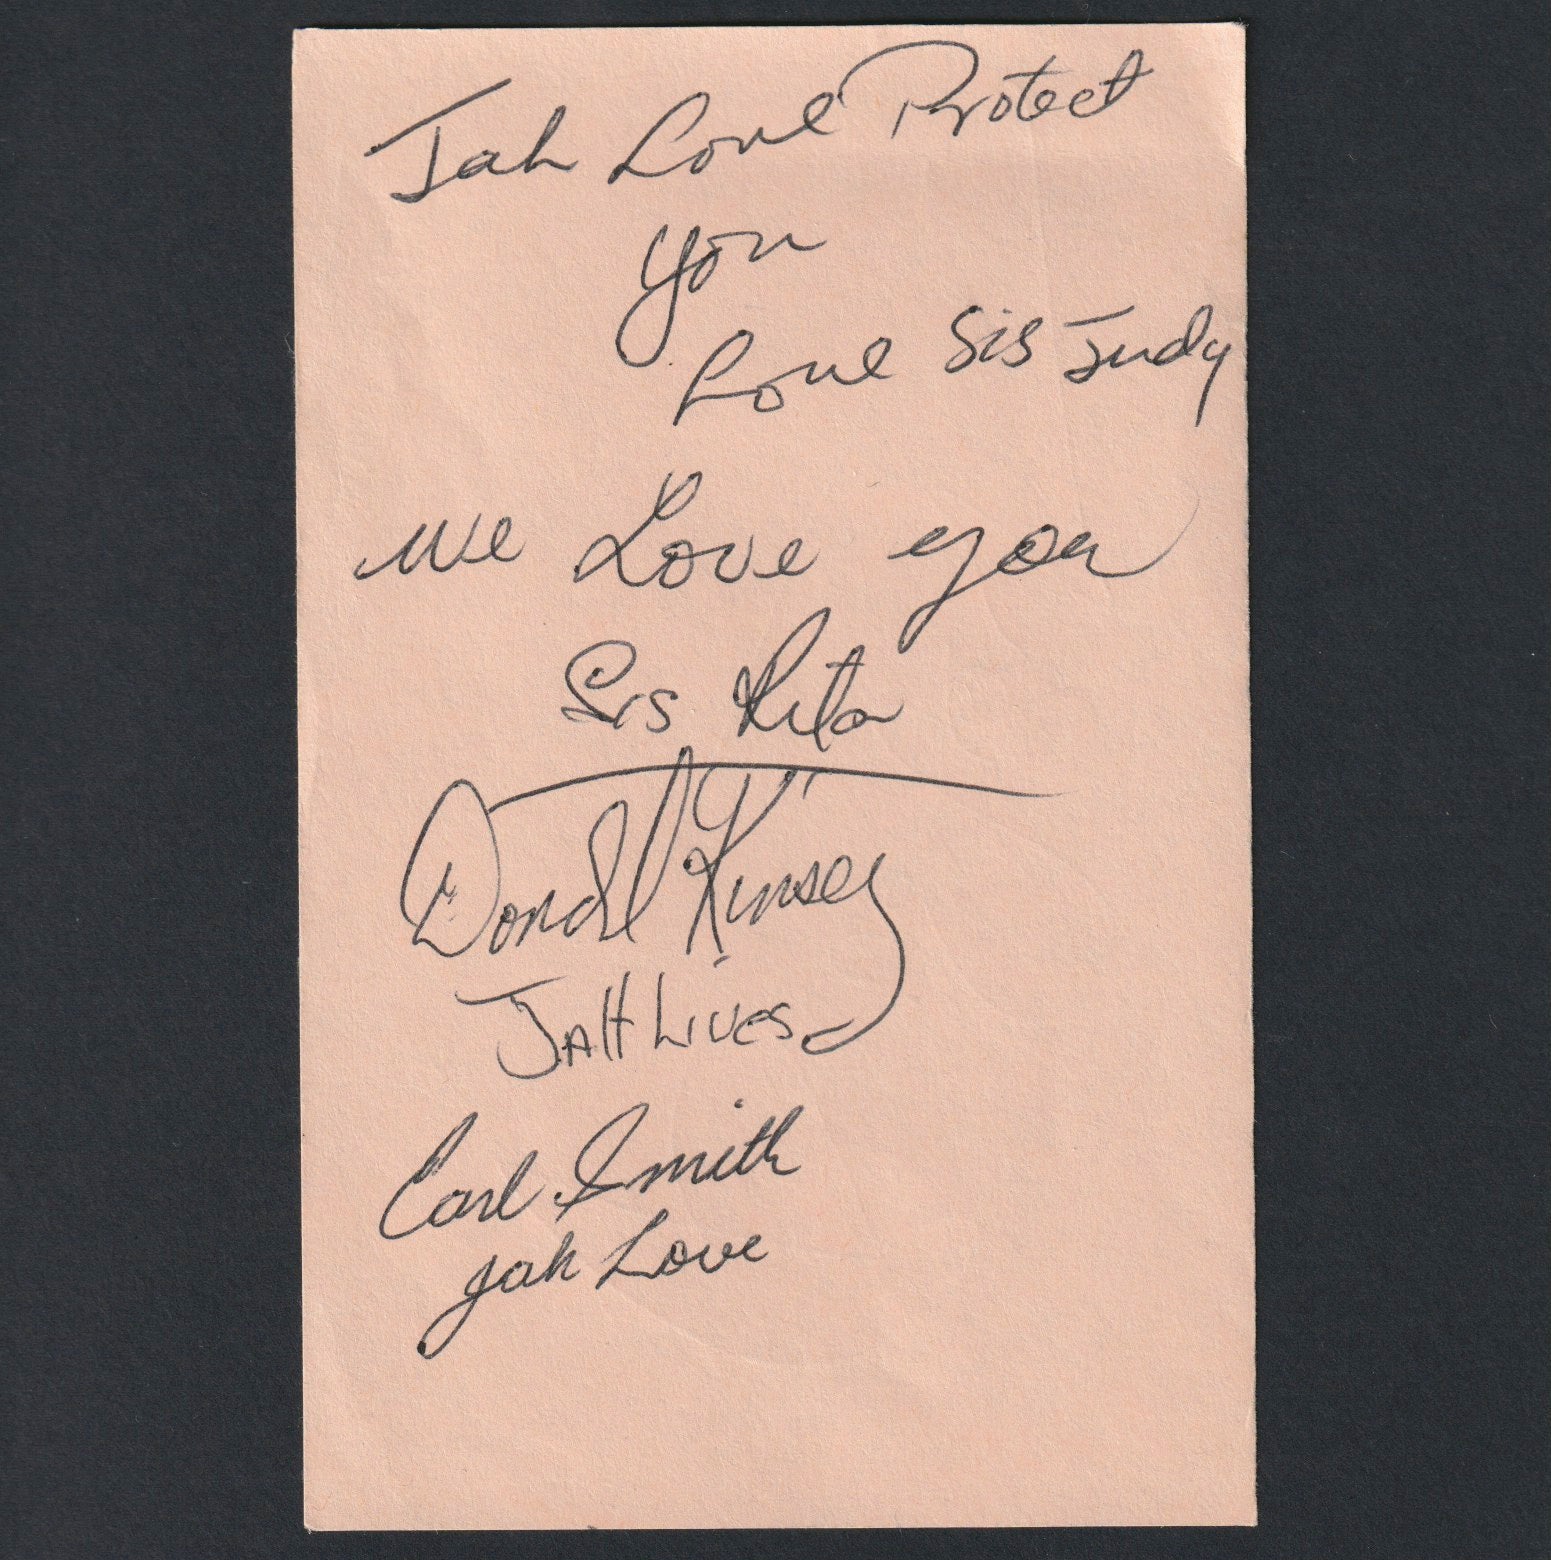 Jah Love Protect
you
Love Sis Judy
We Love you
Sis Rita
Donald Kinsey
JAH LIVES
Carl Smith
Jah Love